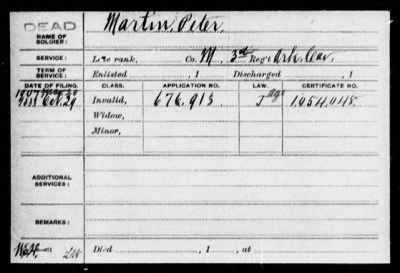 DEAD
NAME OF SOLDIER: Martin, Peter,
SERVICE: Late rank, Co. M, 3rd Reg't Ark. Cav.
TERM OF SERVICE: Enlisted , 1 Discharged , 1
DATE OF FILING. CLASS. APPLICATION NO. LAW. CERTIFICATE NO.
Invalid, 676,913 J age 1,054,048.
Widow,
Minor,
ADDITIONAL SERVICES:
REMARKS:
Died , 1 , at